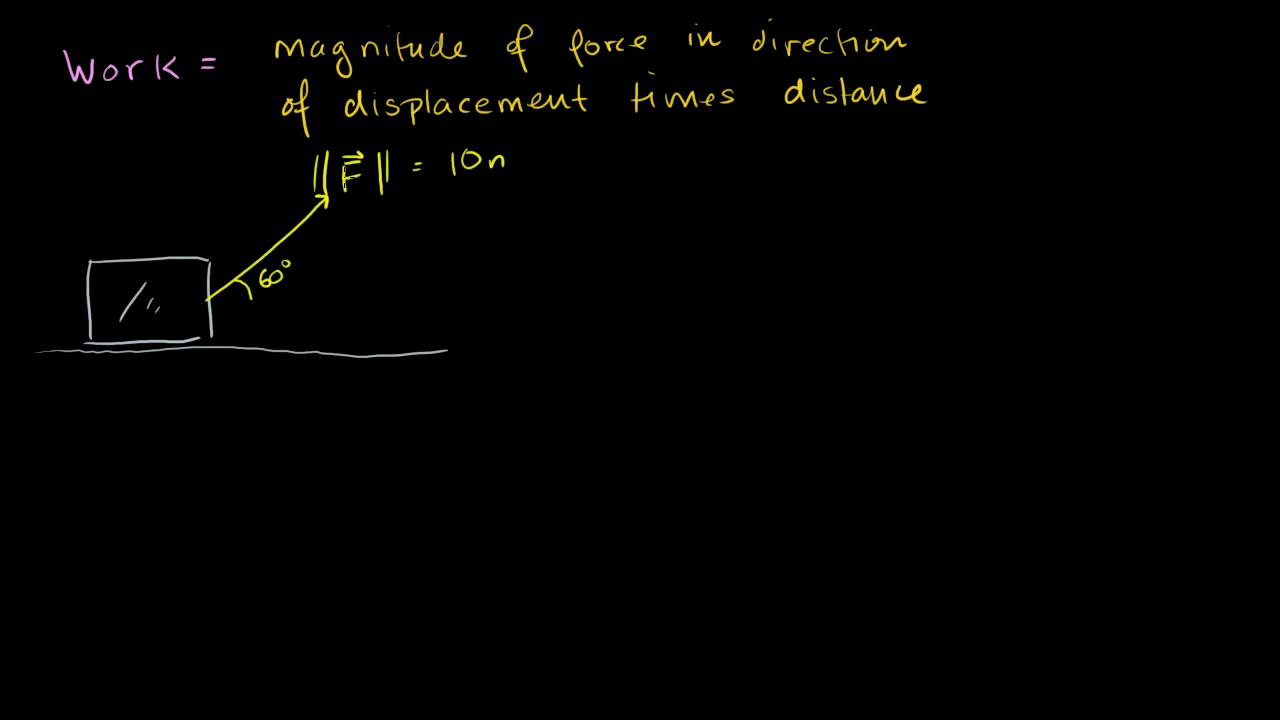 Work = magnitude of force in direction
of displacement times distance
||F⃗|| = 10n
60°